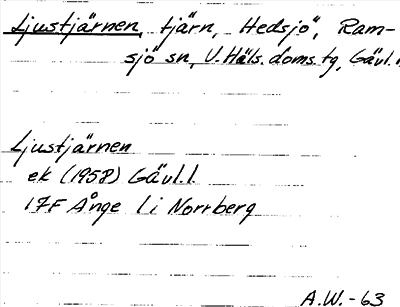 Ljustjärnen, tjärn, Hedsjö, Ram-
sjö sn, V. Häls. doms. tg, Gävl.
Ljustjärnen
ek (1958) Gävl.l.
17F Ånge l i Norrberg
A.W.-63